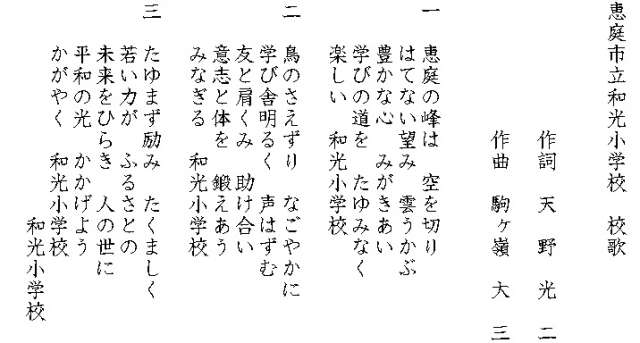 恵庭市立和光小学校 校歌
作詞 天野光二
作曲 駒ヶ嶺大三
一
恵庭の峰は 空を切り
はてない望み 雲うかぶ
豊かな心 みがきあい
学びの道を たゆみなく
楽しい 和光小学校
二
鳥のさえずり なごやかに
学び舎明るく 声はずむ
友と肩くみ 助け合い
意志と体を 鍛えあう
みなぎる 和光小学校
三
たゆまず励み たくましく
若い力が ふるさとの
未来をひらき 人の世に
平和の光 かかげよう
かがやく 和光小学校
和光小学校